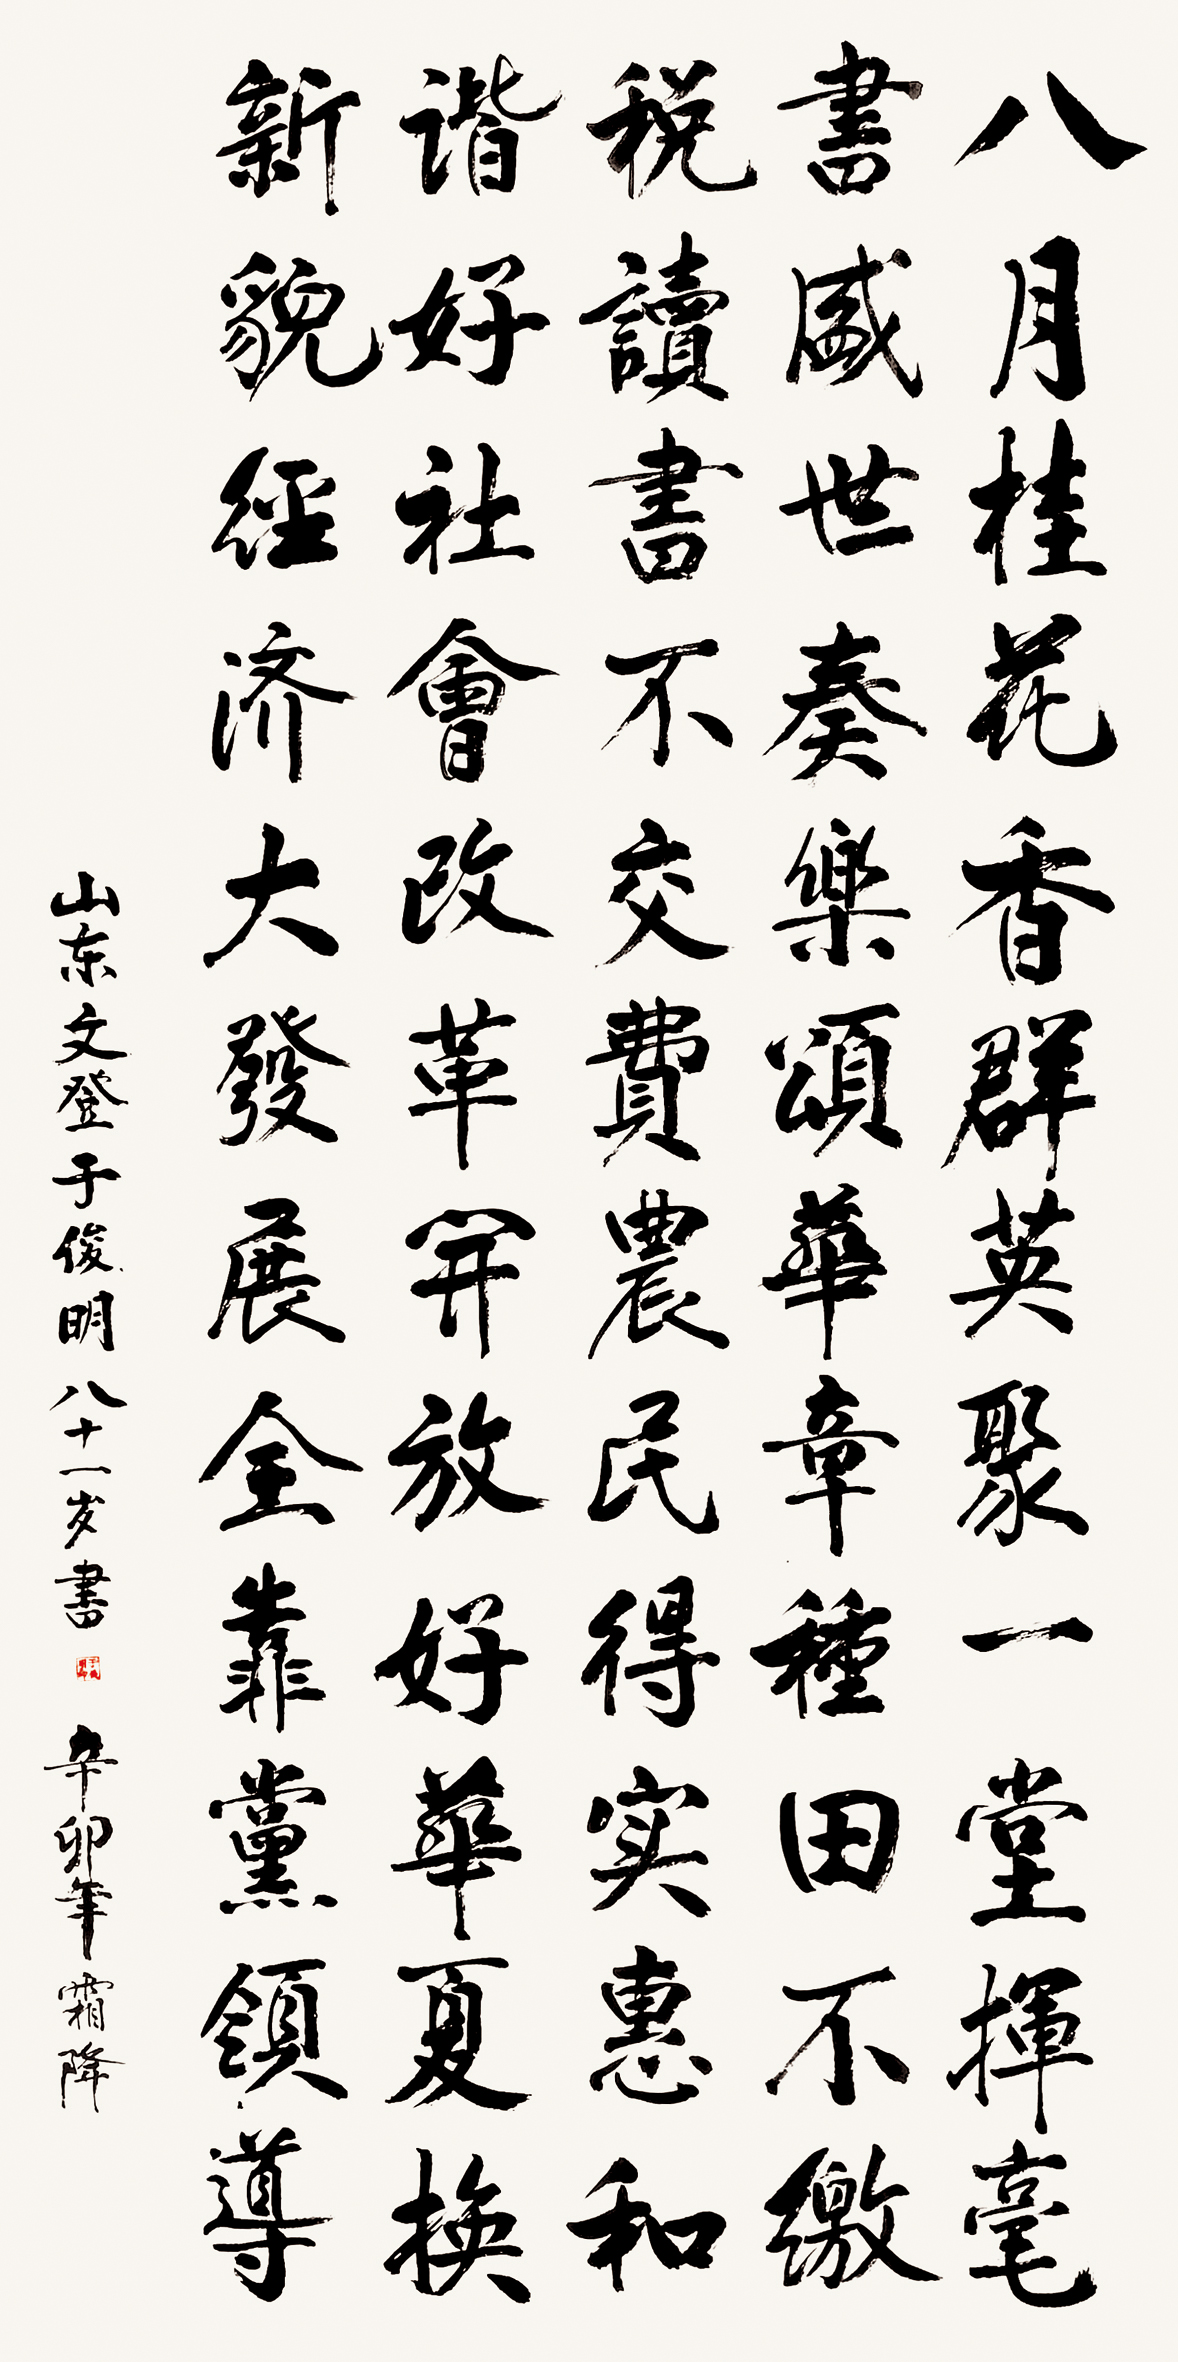 八月桂花香群英聚一堂揮毫
書盛世奏樂頌華章種田不繳
税讀書不交費農民得实惠和
谐好社會改革開放好華夏换
新貌經济大發展全靠黨領導
山东文登于俊明八十一岁書 辛卯年霜降